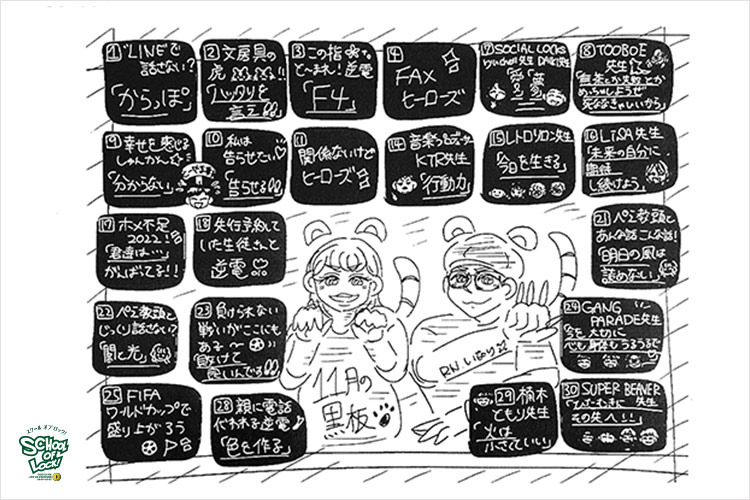 1 "LINE"で
話さない?
「からっぽ」
2 文房具の
虎
「ハッタリを
言え」
3 この指
と〜まれ!逆電
「F4」
4
FAX
ヒーローズ
7 SOCIAL LOCKS
先生
8 TOOBOE
先生
「無茶とか失敗とか
めっちゃしようぜ
死ななきゃいいから」
9 幸せを感じる
しゅんかん
「分からない」
10 私は
告らせたい
「告らせる」
11
関係ないけど
ヒーローズ
14 音楽プロデューサー
KTR先生
「行動力」
15 レトロリロン先生
「今日を生きる」
16 LiSA先生
「未来の自分に
期待
し続けよう」
17 ホメ不足
2022!
「君達は…」
がんばってる!!
18 先行予約して
した生徒さんと
逆電
21 ペえ教頭と
あんな話こんな話!
「明日の風は
読めない」
22 ペえ教頭と
じっくり話さない?
「闇と光」
23 負けられない
戦いがここにも
ある〜
「負けて
悔いんでる」
24 GANG
PARADE先生
「今を大切に
心も身体もうるうるで」
25 FIFA
ワールドカップで
盛り上がろう
28 親に電話
代われる逆電
「色を作る」
29 楠木
ともり先生
「火は
小さくていい」
30 SUPER BEAVER
先生
「ひたむきに
その先へ!!」
11月の
黒板
RN
スクール オブ ロック!
SCHOOL
OF
LOCK!